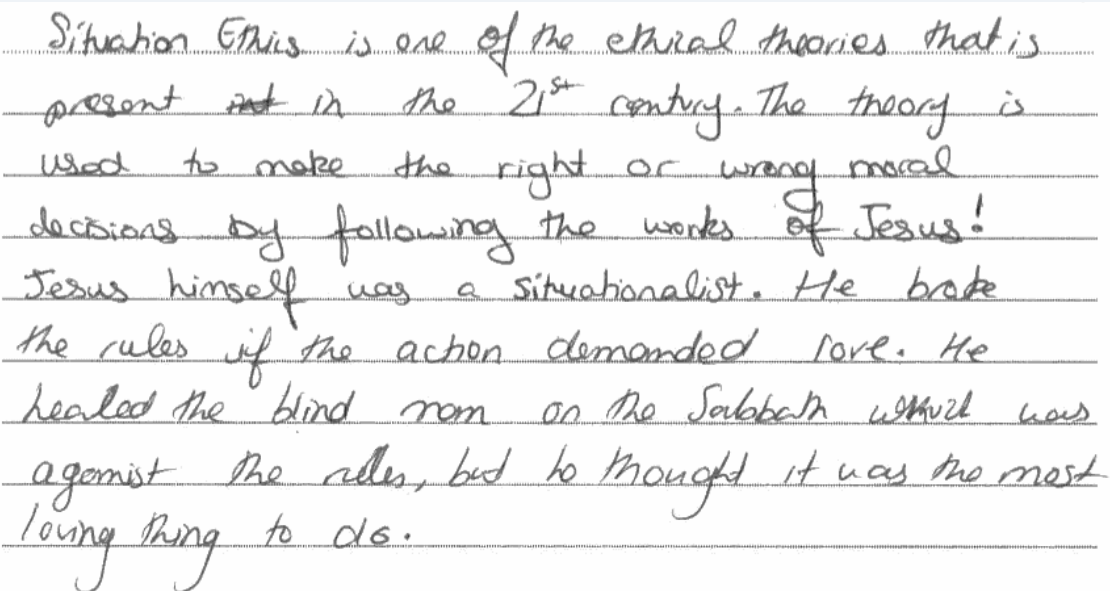 Situation Ethics is one of the ethical theories that is
present in the 21st century. The theory is
used to make the right or wrong moral
decisions by following the works of Jesus!
Jesus himself was a situationalist. He broke
the rules if the action demanded love. He
healed the blind man on the Sabbath which was
against the rules, but he thought it was the most
loving thing to do.